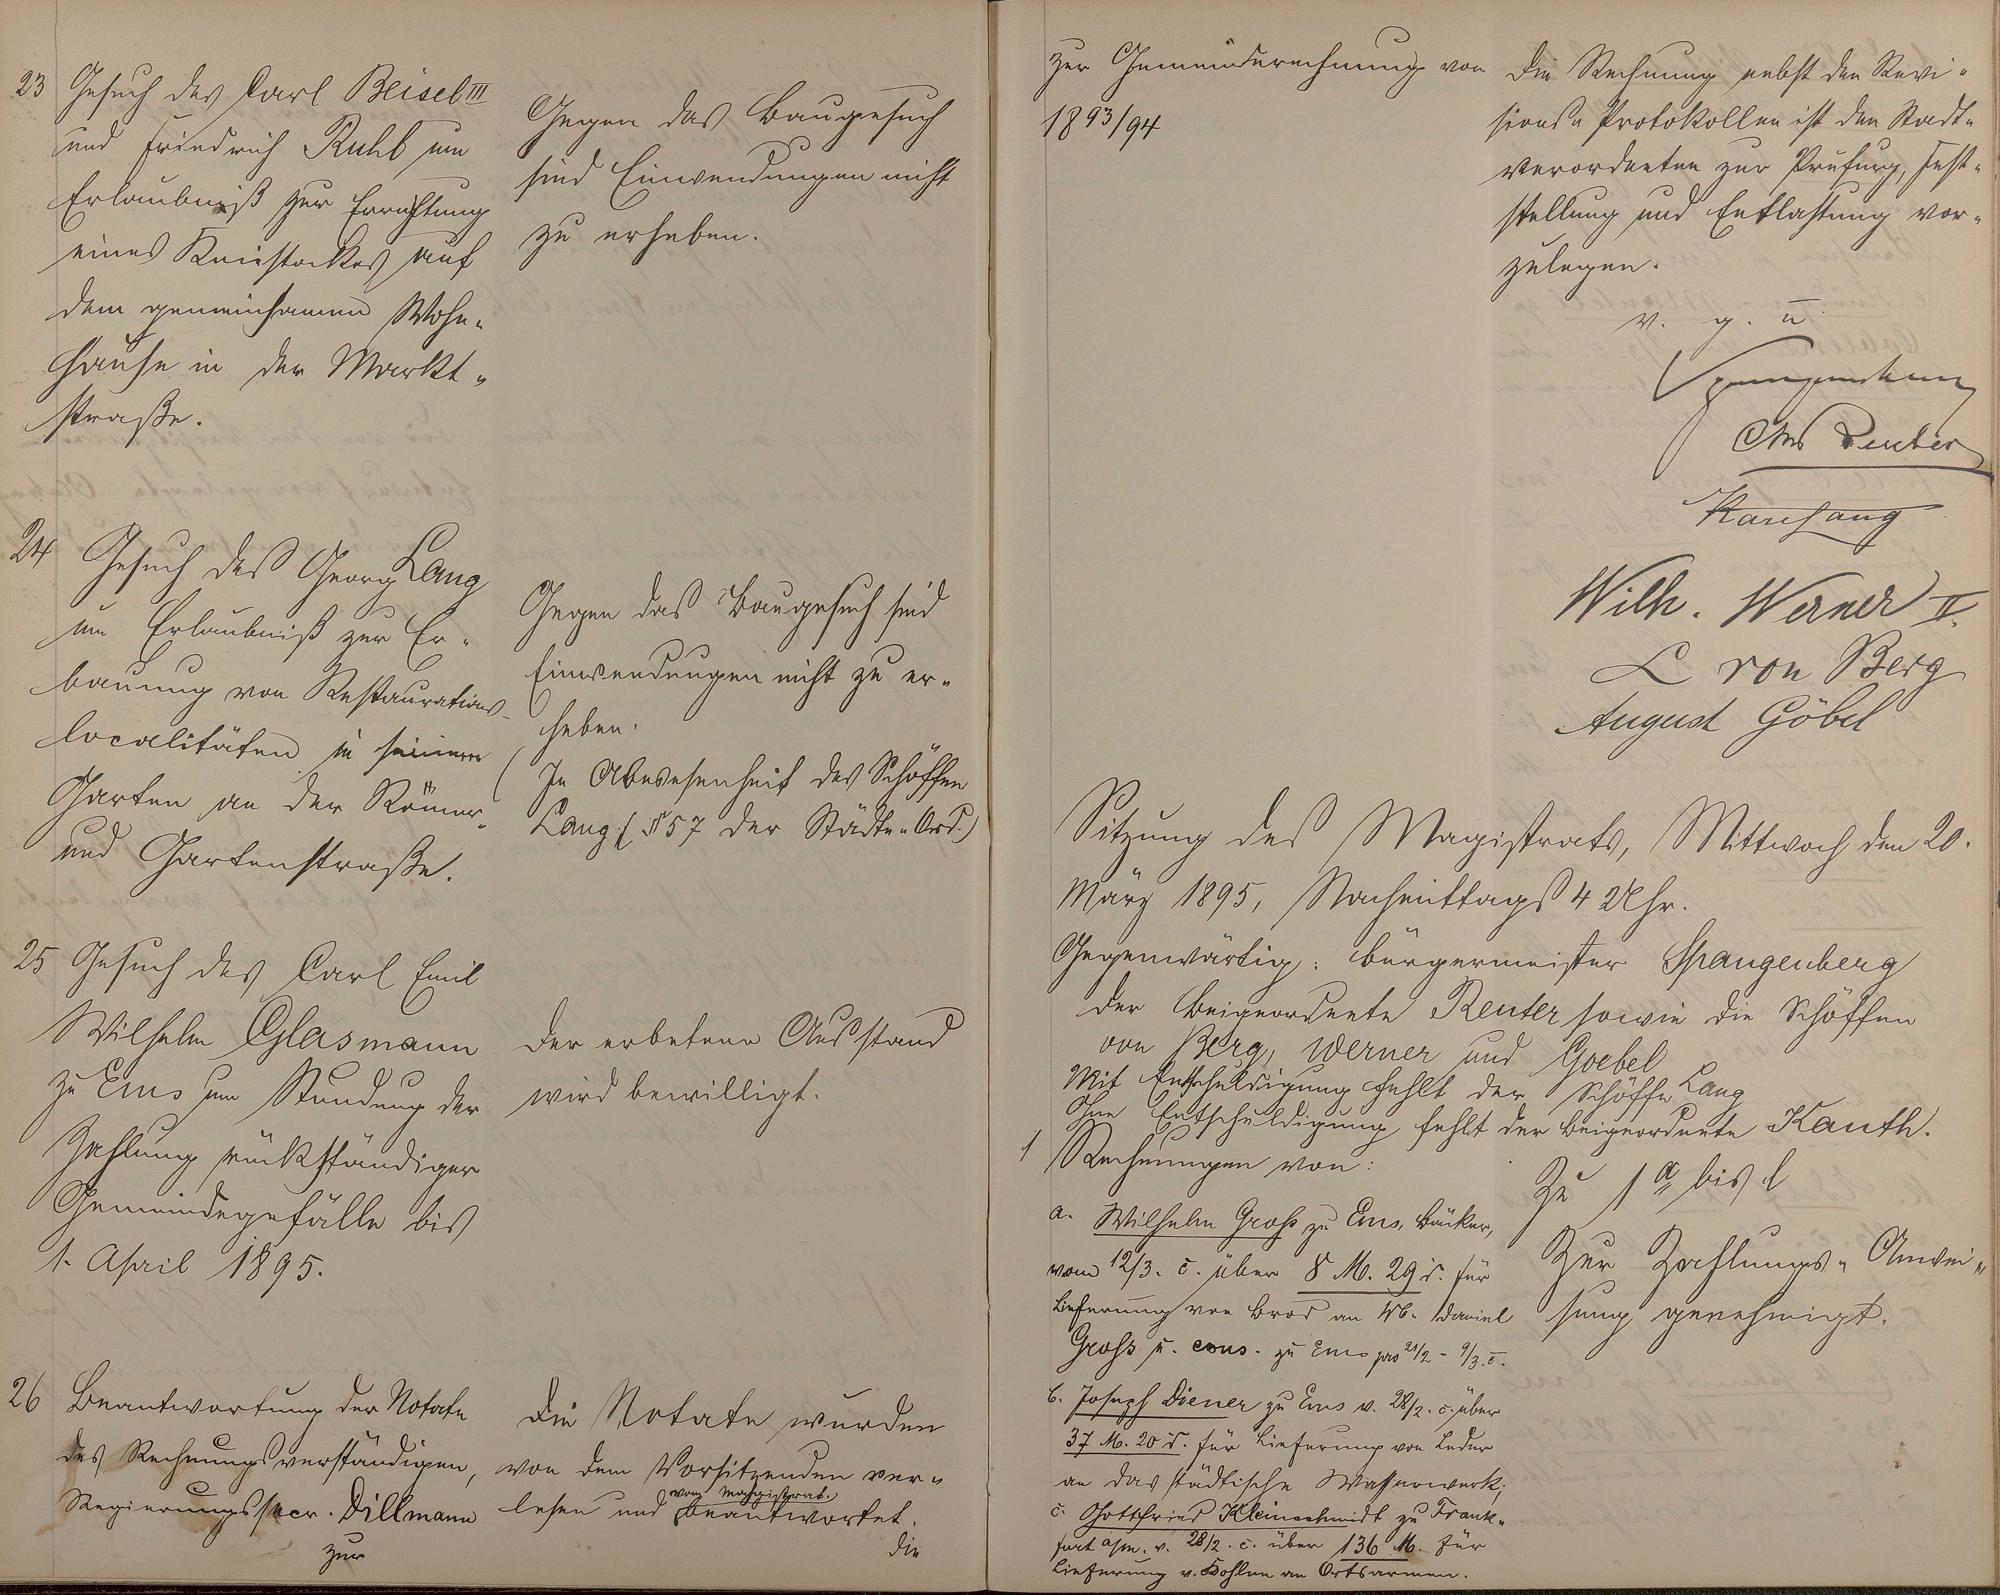 23 Gesuch des Carl Beisel III
und Friedrich Ruhl um
Erlaubniß zur Errichtung
eines Kniestockes auf
dem gemeinsamen Wohn-
hause in der Markt-
straße.
Gegen das Baugesuch
sind Einwendungen nicht
zu erheben.
24 Gesuch des Georg Lang
um Erlaubniß zur Er-
bauung von Restaurations-
localitäten in seinem
Garten an der Römer-
und Gartenstraße.
Gegen das Baugesuch sind
Einwendungen nicht zu er-
heben.
(In Abwesenheit des Schöffen
Lang (§ 57 der Städte-Ord.)
25 Gesuch des Carl Emil
Wilhelm Glasmann
zu Ems um Stundung der
Zahlung rückständiger
Gemeindegefälle bis
1. April 1895.
Der erbetene Ausstand
wird bewilligt.
26 Beantwortung der Notate
des Rechnungsverständigen,
Regierungssecr. Dillmann
zur
Die Notate wurden
von dem Vorsitzenden ver-
lesen und vom Magistrat beantwortet.
Die
zur Gemeinderechnung von
1893/94
Die Rechnung nebst den Revi-
sions-Protokollen ist den Stadt-
verordneten zur Prüfung, Fest-
stellung und Entlastung vor-
zulegen.
v. g. u.
Spangenberg
Reuter
Karl Lang
Wilh. Werner II.
L von Berg
August Göbel
Sitzung des Magistrats, Mittwoch den 20.
März 1895, Nachmittags 4 Uhr.
Gegenwärtig: Bürgermeister Spangenberg
der Beigeordnete Reuter sowie die Schöffen
von Berg, Werner und Goebel
Mit Entschuldigung fehlt der Schöffe Lang
Ohne Entschuldigung fehlt der Beigeordnete Kauth.
1 Rechnungen von:
a. Wilhelm Groß zu Ems, Bäcker,
vom 12/3. c. über 8 M. 29 d. für
Lieferung von Brod an Wb. Daniel
Groß u. cons. zu Ems pro 21/2 - 9/3. c.
b. Joseph Diener zu Ems v. 28/2. c. über
37 M. 20 d. für Lieferung von Leder
an das städtische Wasserwerk;
c. Gottfried Kleinschmidt zu Frank-
furt a/m. v. 28/2. c. über 136 M. für
Lieferung v. Kohlen an Ortsarmen.
Zu 1 a bis l
Zur Zahlungs-Anwei-
sung genehmigt.